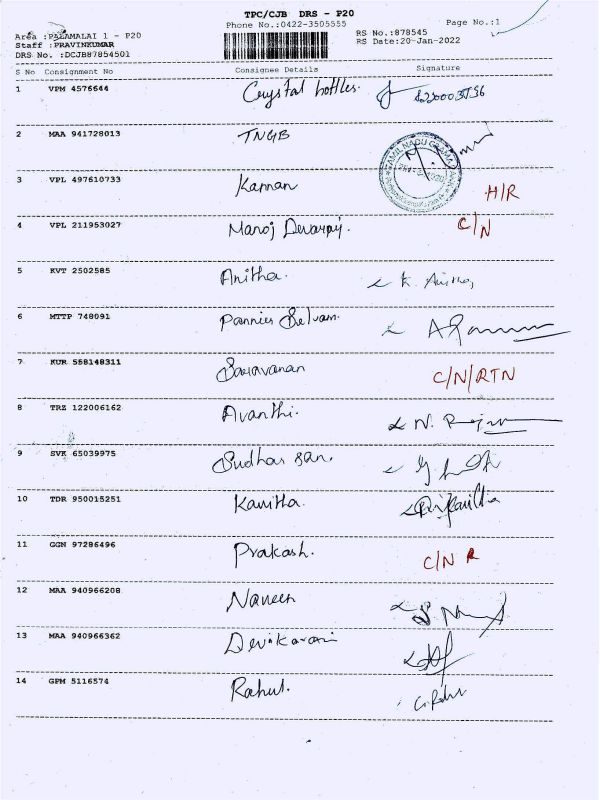 TPC/CJB DRS - P20
Phone No.:0422-3505555
Page No.:1
Area :PALAMALAI 1 - P20
Staff :PRAVINKUMAR
DRS No. :DCJB87854501
RS No.:878545
RS Date:20-Jan-2022
S No Consignment No Consignee Details Signature
1 VPM 4576644 Crystal bottles.
2 MAA 941728013 TNGB
3 VPL 497610733 Kannan H/R
4 VPL 211953027 Manoj Devaraj. C/N
5 KVT 2502585 Anitha.
6 MTTP 748091 Pannier Selvam.
7 KUR 558148311 Saravanan C/N/RTN
8 TRZ 122006162 Avanthi.
9 SVK 65039975 Sudharsan.
10 TDR 950015251 Kavitha.
11 GGN 97286496 Prakash. C/N R
12 MAA 940966208 Naveen
13 MAA 940966362 Devikarani
14 GPM 5116574 Rahul.